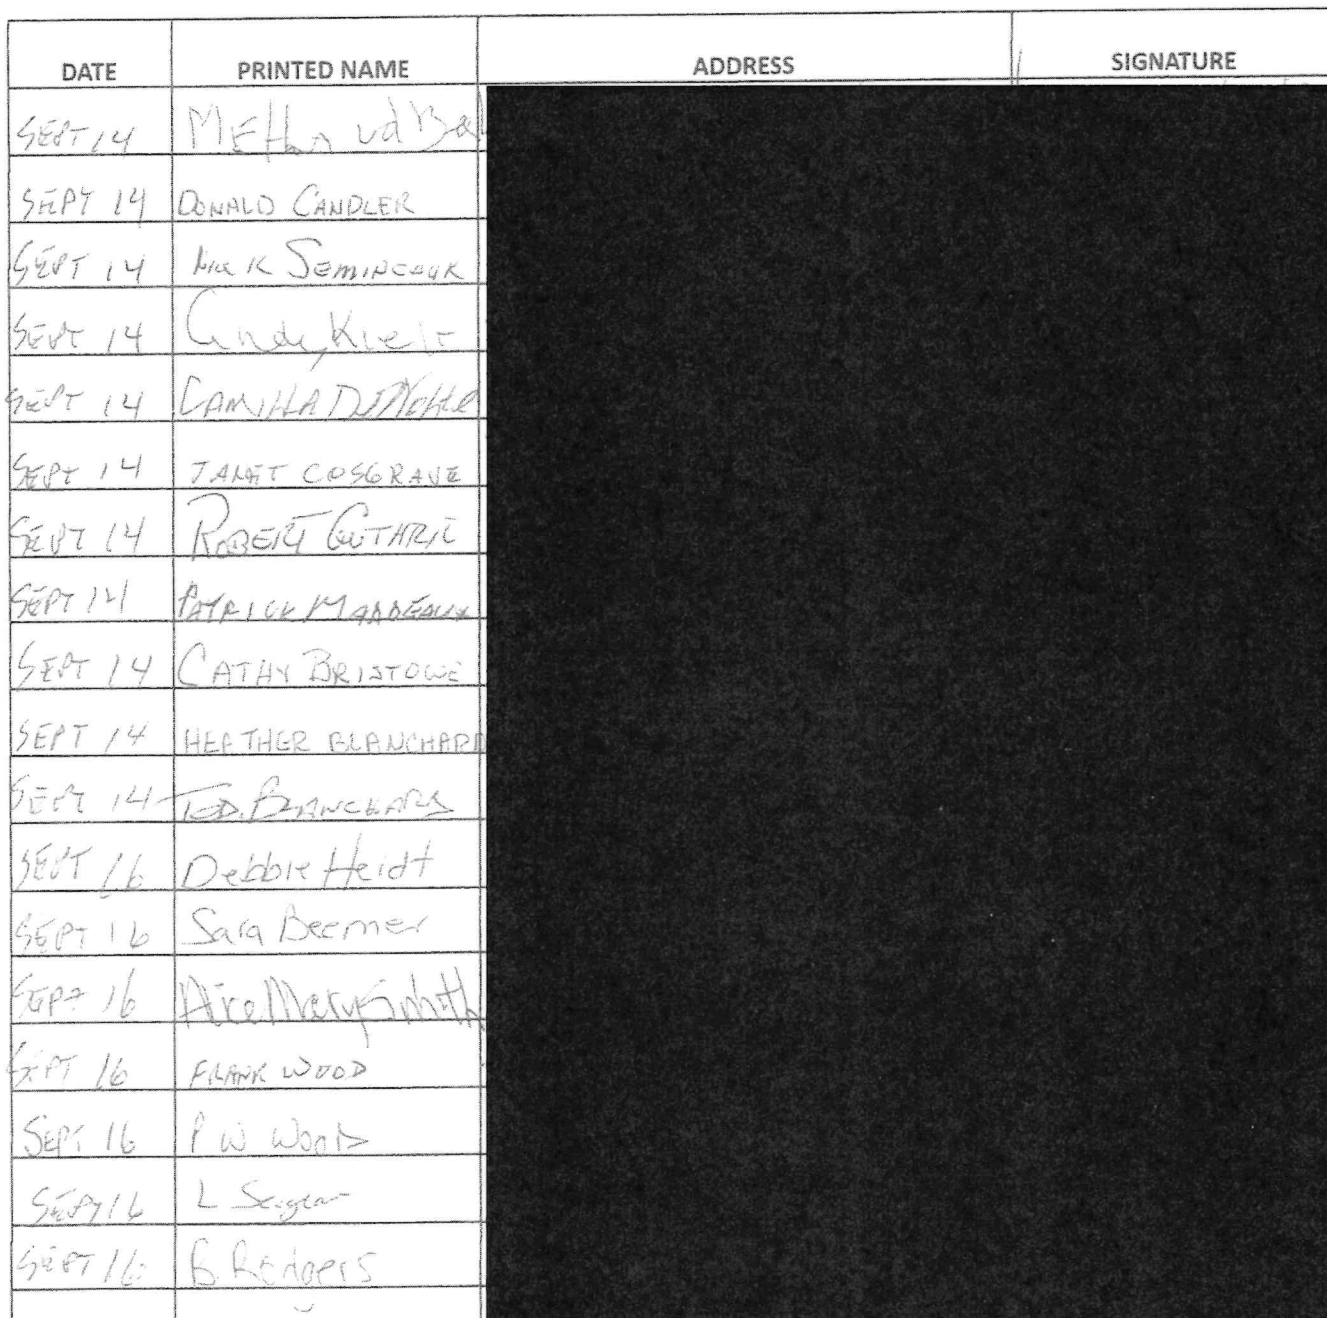 DATE PRINTED NAME ADDRESS SIGNATURE
SEPT 14
SEPT 14 DONALD CANDLER
SEPT 14
SEPT 14 Cindy
SEPT 14 CAMILLA
SEPT 14 JANET COSGRAVE
SEPT 14 ROBERT GUTHRIE
SEPT 14 PATRICK
SEPT 14 CATHY BRISTOWE
SEPT 14 HEATHER BLANCHARD
SEPT 14 TED. BLANCHARD
SEPT 16 Debbie Heidt
SEPT 16 Sara Beemer
SEPT 16 Smith
SEPT 16 FRANK WOOD
SEPT 16 P W WOOD
SEPT 16 L
SEPT 16 B. Rodgers